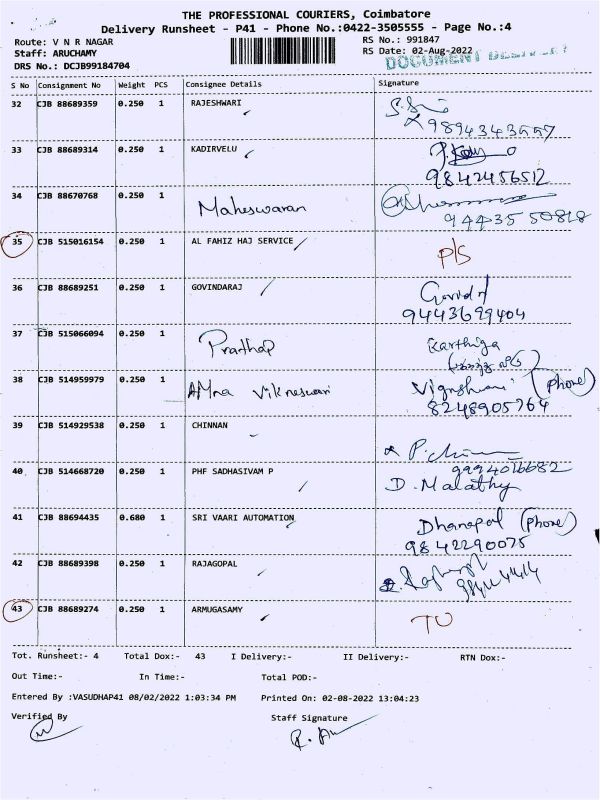 THE PROFESSIONAL COURIERS, Coimbatore
Delivery Runsheet - P41 - Phone No.:0422-3505555 - Page No.:4
Route: V N R NAGAR RS No.: 991847
Staff: ARUCHAMY RS Date: 02-Aug-2022
DRS No.: DCJB99184704 DOCUMENT
S No Consignment No Weight PCS Consignee Details Signature
32 CJB 88689359 0.250 1 RAJESHWARI
33 CJB 88689314 0.250 1 KADIRVELU
9842456512
34 CJB 88670768 0.250 1 Maheswaran
94435 50818
35 CJB 515016154 0.250 1 AL FAHIZ HAJ SERVICE P/S
36 CJB 88689251 0.250 1 GOVINDARAJ
9443699404
37 CJB 515066094 0.250 1 Prathap Karthiga
38 CJB 514959979 0.250 1 Vikneswari (phone)
8248905764
39 CJB 514929538 1 CHINNAN
9994016682
40 CJB 514668720 0.250 1 PHF SADHASIVAM P D. Malathy
41 CJB 88694435 0.680 1 SRI VAARI AUTOMATION Dhanapal (phone)
9842290075
42 CJB 88689398 0.250 1 RAJAGOPAL
43 CJB 88689274 0.250 1 ARMUGASAMY TO
Tot. Runsheet:- 4 Total Dox:- 43 I Delivery:- II Delivery:- RTN Dox:-
Out Time:- In Time:- Total POD:-
Entered By :VASUDHAP41 08/02/2022 1:03:34 PM Printed On: 02-08-2022 13:04:23
Verified By Staff Signature